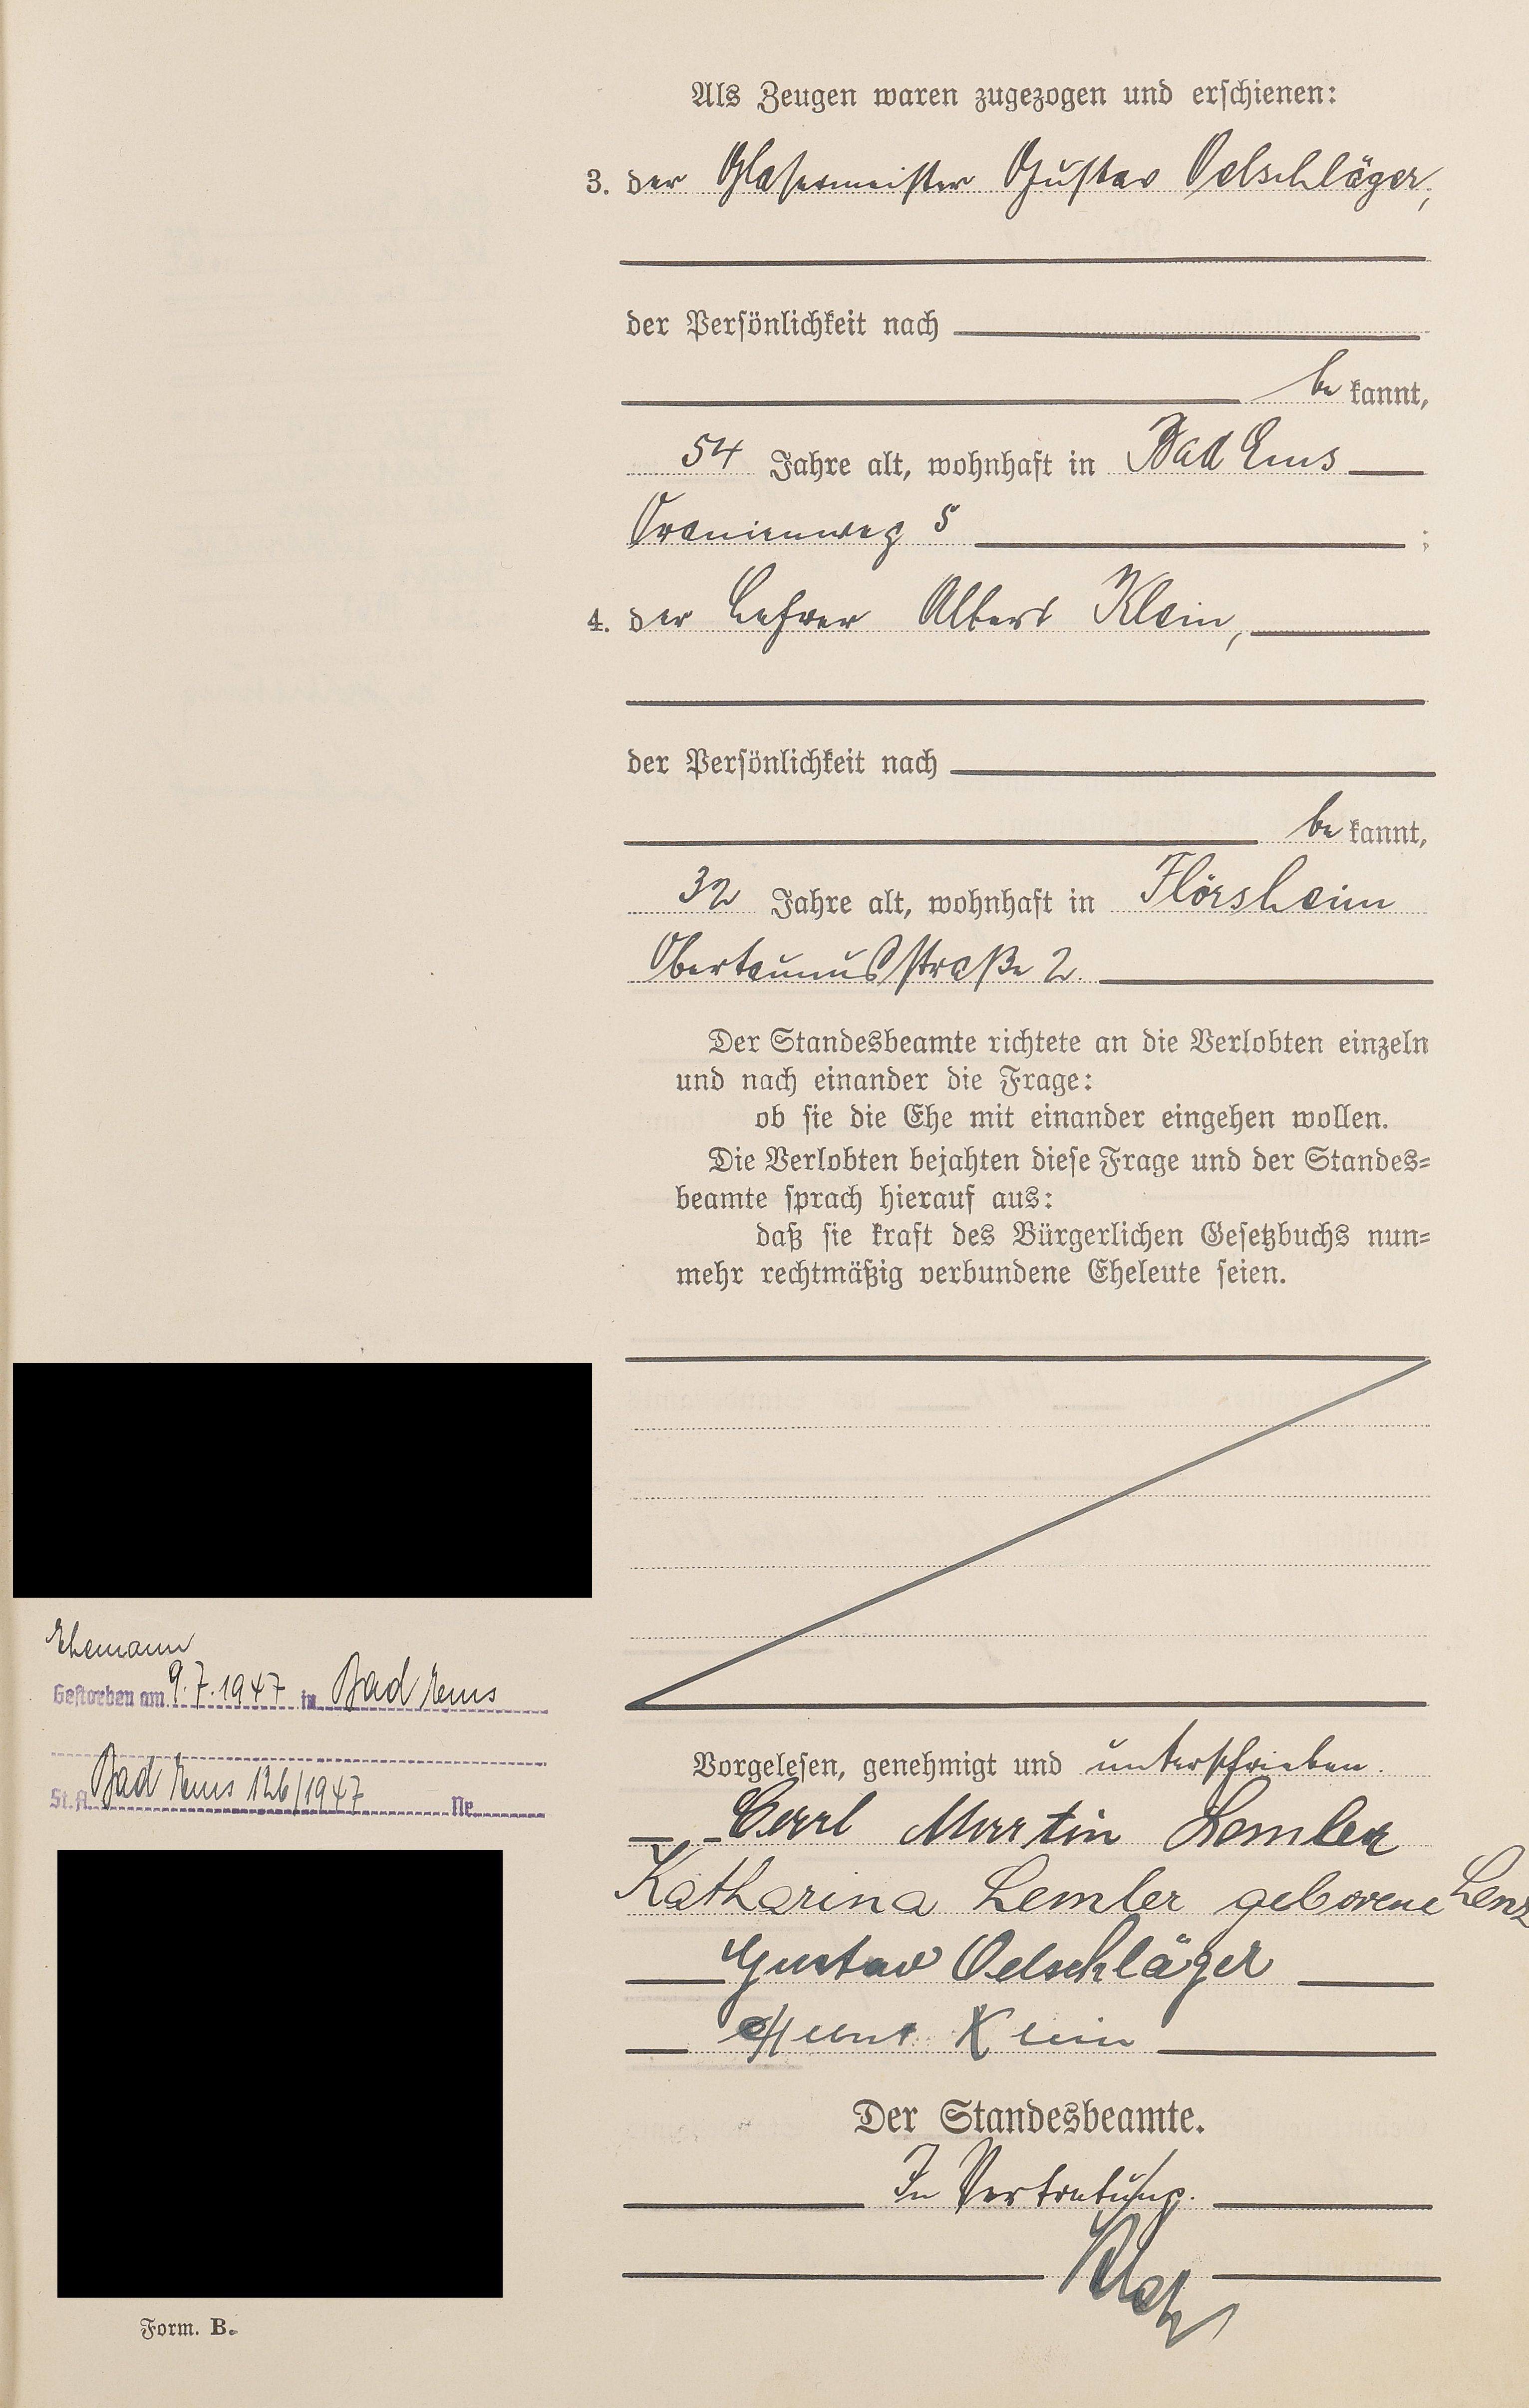 Als Zeugen waren zugezogen und erschienen:
3. der Glasermeister Gustav Oelschläger,
der Persönlichkeit nach
be kannt,
54 Jahre alt, wohnhaft in Bad Ems
Oranienweg 5 ;
4. der Lehrer Albert Klein,
der Persönlichkeit nach
be kannt,
32 Jahre alt, wohnhaft in Flörsheim
Obertaunusstraße 2.
Der Standesbeamte richtete an die Verlobten einzeln
und nach einander die Frage:
ob sie die Ehe mit einander eingehen wollen.
Die Verlobten bejahten diese Frage und der Standes=
beamte sprach hierauf aus:
daß sie kraft des Bürgerlichen Gesetzbuchs nun=
mehr rechtmäßig verbundene Eheleute seien.
Ehemann
Gestorben am 9.7.1947 in Bad Ems
St.A. Bad Ems 126/1947 Nr.
Vorgelesen, genehmigt und unterschrieben.
Carl Martin Lemler
Katharina Lemler geborene Lenz
Gustav Oelschläger
Albert Klein
Der Standesbeamte.
In Vertretung.
Form. B.